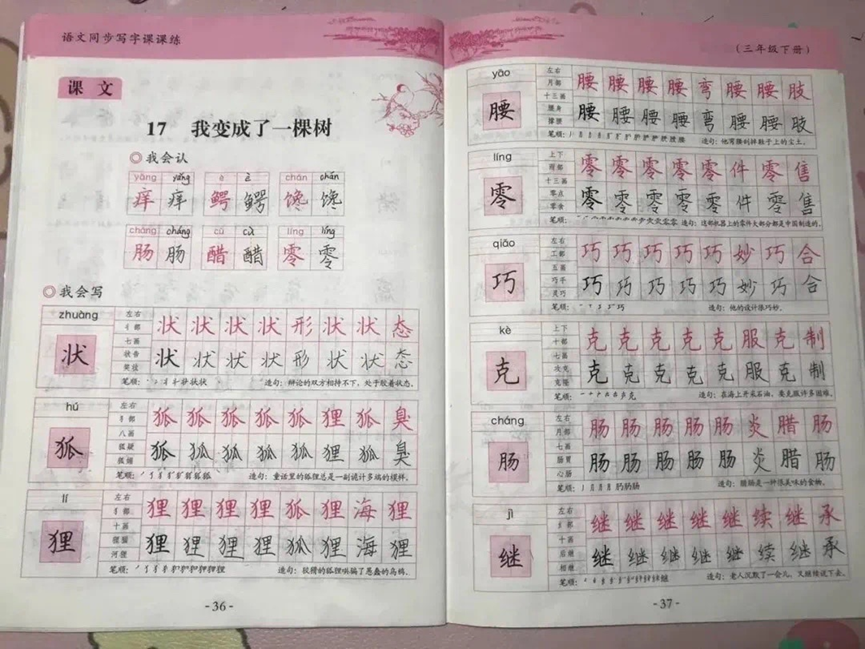 语文同步写字课课练
课文
17 我变成了一棵树
我会认
yǎng yǎng è è chán chán
痒 痒 鳄 鳄 馋 馋
cháng cháng cù cù líng líng
肠 肠 醋 醋 零 零
我会写
zhuàng
状
左右
丬部
七画
状告
奖状
状 状 状 状 形 状 状 态
状 状 状 状 形 状 状 态
笔顺:
造句:辩论的双方相持不下,处于胶着状态。
hú
狐
左右
犭部
八画
狐疑
狐 狐 狐 狐 狐 狸 狐 臭
狐 狐 狐 狐 狐 狸 狐 臭
笔顺:
造句:童话里的狐狸总是一副诡计多端的模样。
lí
狸
左右
犭部
十画
狸猫
河狸
狸 狸 狸 狸 狐 狸 海 狸
狸 狸 狸 狸 狐 狸 海 狸
笔顺:
造句:狡猾的狐狸哄骗了愚蠢的乌鸦。
- 36 -
(三年级下册)
yāo
腰
左右
月部
十三画
腰身
撑腰
腰 腰 腰 腰 弯 腰 腰 肢
腰 腰 腰 腰 弯 腰 腰 肢
笔顺:
造句:他弯腰刮掉鞋子上的尘土。
líng
零
上下
雨部
十三画
零点
零食
零 零 零 零 零 件 零 售
零 零 零 零 零 件 零 售
笔顺:
造句:这部机器上的零件大部分都是中国制造的。
qiǎo
巧
左右
工部
五画
巧手
灵巧
巧 巧 巧 巧 巧 妙 巧 合
巧 巧 巧 巧 巧 妙 巧 合
笔顺:
造句:他的设计很巧妙。
kè
克
上下
十部
七画
攻克
克隆
克 克 克 克 克 服 克 制
克 克 克 克 克 服 克 制
笔顺:
造句:在海上开采石油,要克服许多困难。
cháng
肠
左右
月部
七画
肠胃
心肠
肠 肠 肠 肠 肠 炎 腊 肠
肠 肠 肠 肠 肠 炎 腊 肠
笔顺:
造句:腊肠是一种很美味的食物。
jì
继
左右
纟部
十画
后继
相继
继 继 继 继 继 续 继 承
继 继 继 继 继 续 继 承
笔顺:
造句:老人沉默了一会儿,又继续说下去。
- 37 -